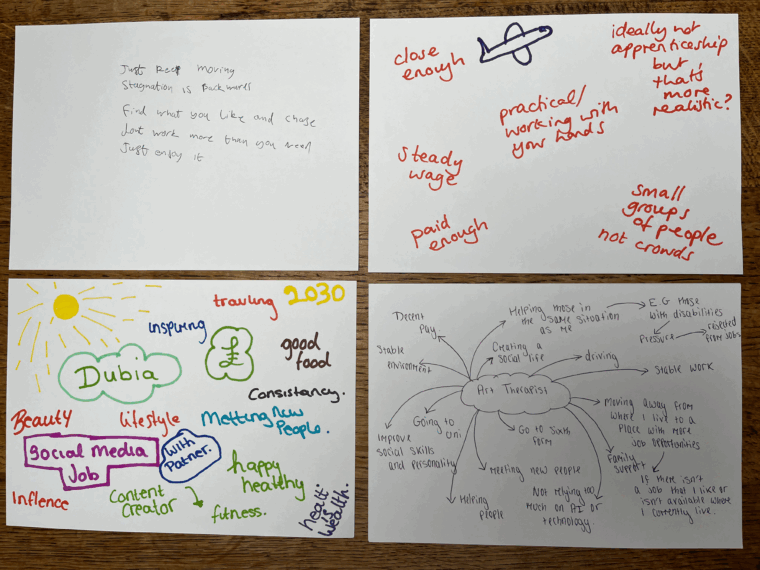 Just keep moving
Stagnation is Backwards
Find what you like and chase
Dont work more than you need
Just enjoy it
close
enough
ideally not
apprenticeship
but,
thats
more
realistic?
practical/
working with
your hands
steady
wage
paid
enough
small
groups
of people
not crowds
travling
2030
inspiring
£
good
food
Dubia
Consistancy.
Beauty
lifestyle
Metting New
People.
Social media
Job
With
Patner.
happy
healthy
Inflence
Content
Creator
fitness.
healt
is
wealth.
Decent
Pay.
Helping those in
the same situation
as me
E.G those
with disabilities
Pressure
rejected
from Jobs
Stable
environment
Creating a
social life
driving
Stable work
Art Therapist
Improve
social skills
and personality
Going to
Uni.
Go to Sixth
form
Moving away from
where I live to a
Place with more
Job opportunities
Family
support
Meeting new people
Helping
people
Not relying too
much on AI or
technology.
If there isn't
a Job that I like or
isn't available where
I currently live.